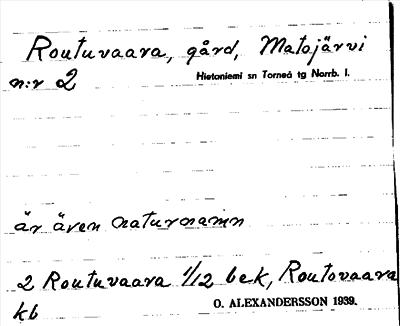 Routuvaara, gård, Matojärvi
n:r 2
Hietaniemi sn Torneå tg Norrb. l.
är även naturnamn
2 Routuvaara 1/12 bek, Routovaara
kb
O. ALEXANDERSSON 1939.